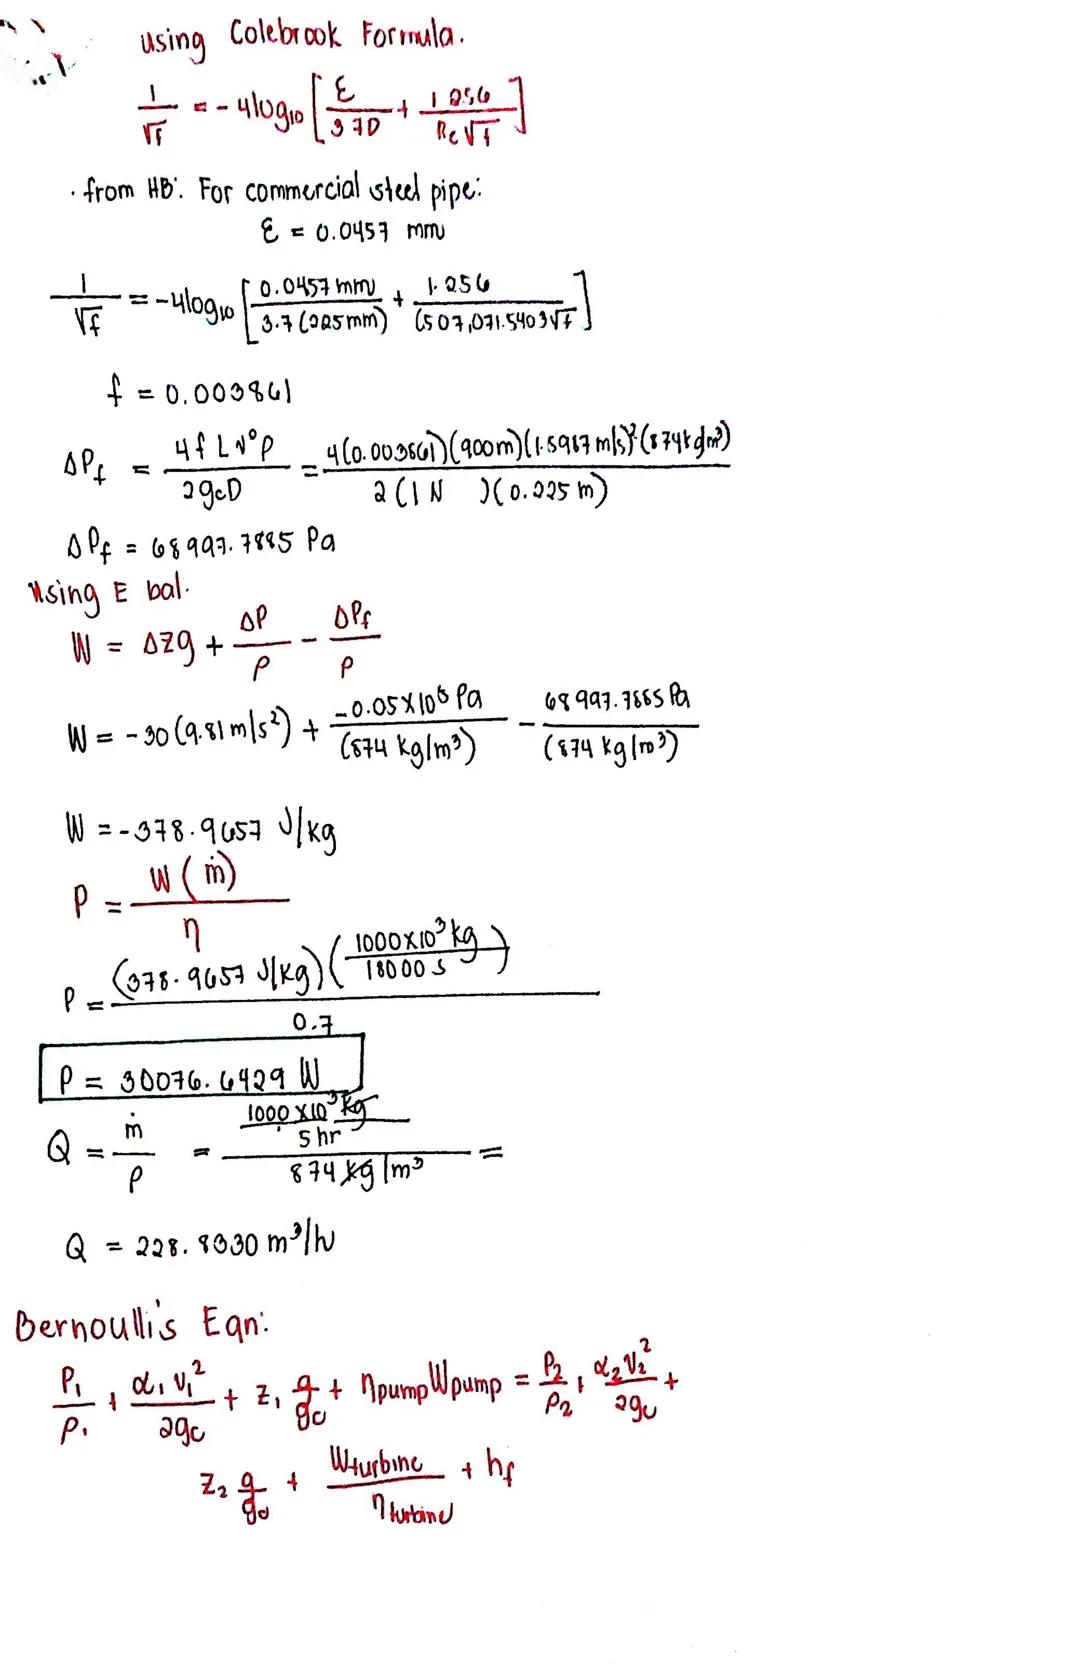 using Colebrook Formula.
1/√f = -4log10 [ε/3.7D + 1.256/Re√f]
· from HB: For commercial steel pipe:
ε = 0.0457 mm
1/√f = -4log10 [0.0457mm/3.7(225mm) + 1.256/(507,071.5403√f]
f = 0.003861
ΔPf = 4fLv²ρ/2gcD = 4(0.003861)(900m)(1.5967m/s)²(874kg/m³)/2(1N )(0.225m)
ΔPf = 68997.7885 Pa
Using E bal.
W = ΔZg + ΔP/ρ - ΔPf/ρ
W = -30(9.81m/s²) + -0.05X10⁶Pa/(874 kg/m³) - 68997.7885Pa/(874 kg/m³)
W = -378.9657 J/kg
P = W(ṁ)/η
P = (378.9657 J/kg)(1000X10³kg/18000s)/0.7
P = 30076.6429 W
Q = ṁ/ρ = 1000X10³kg/5hr/874kg/m³ =
Q = 228.8330 m³/h
Bernoulli's Eqn:
P₁/ρ₁ + α₁v₁²/2gc + z₁ g/gc + ηpumpWpump = P₂/ρ₂ + α₂V₂²/2gc +
Z₂ g/gc + Wturbine/ηturbine + hf